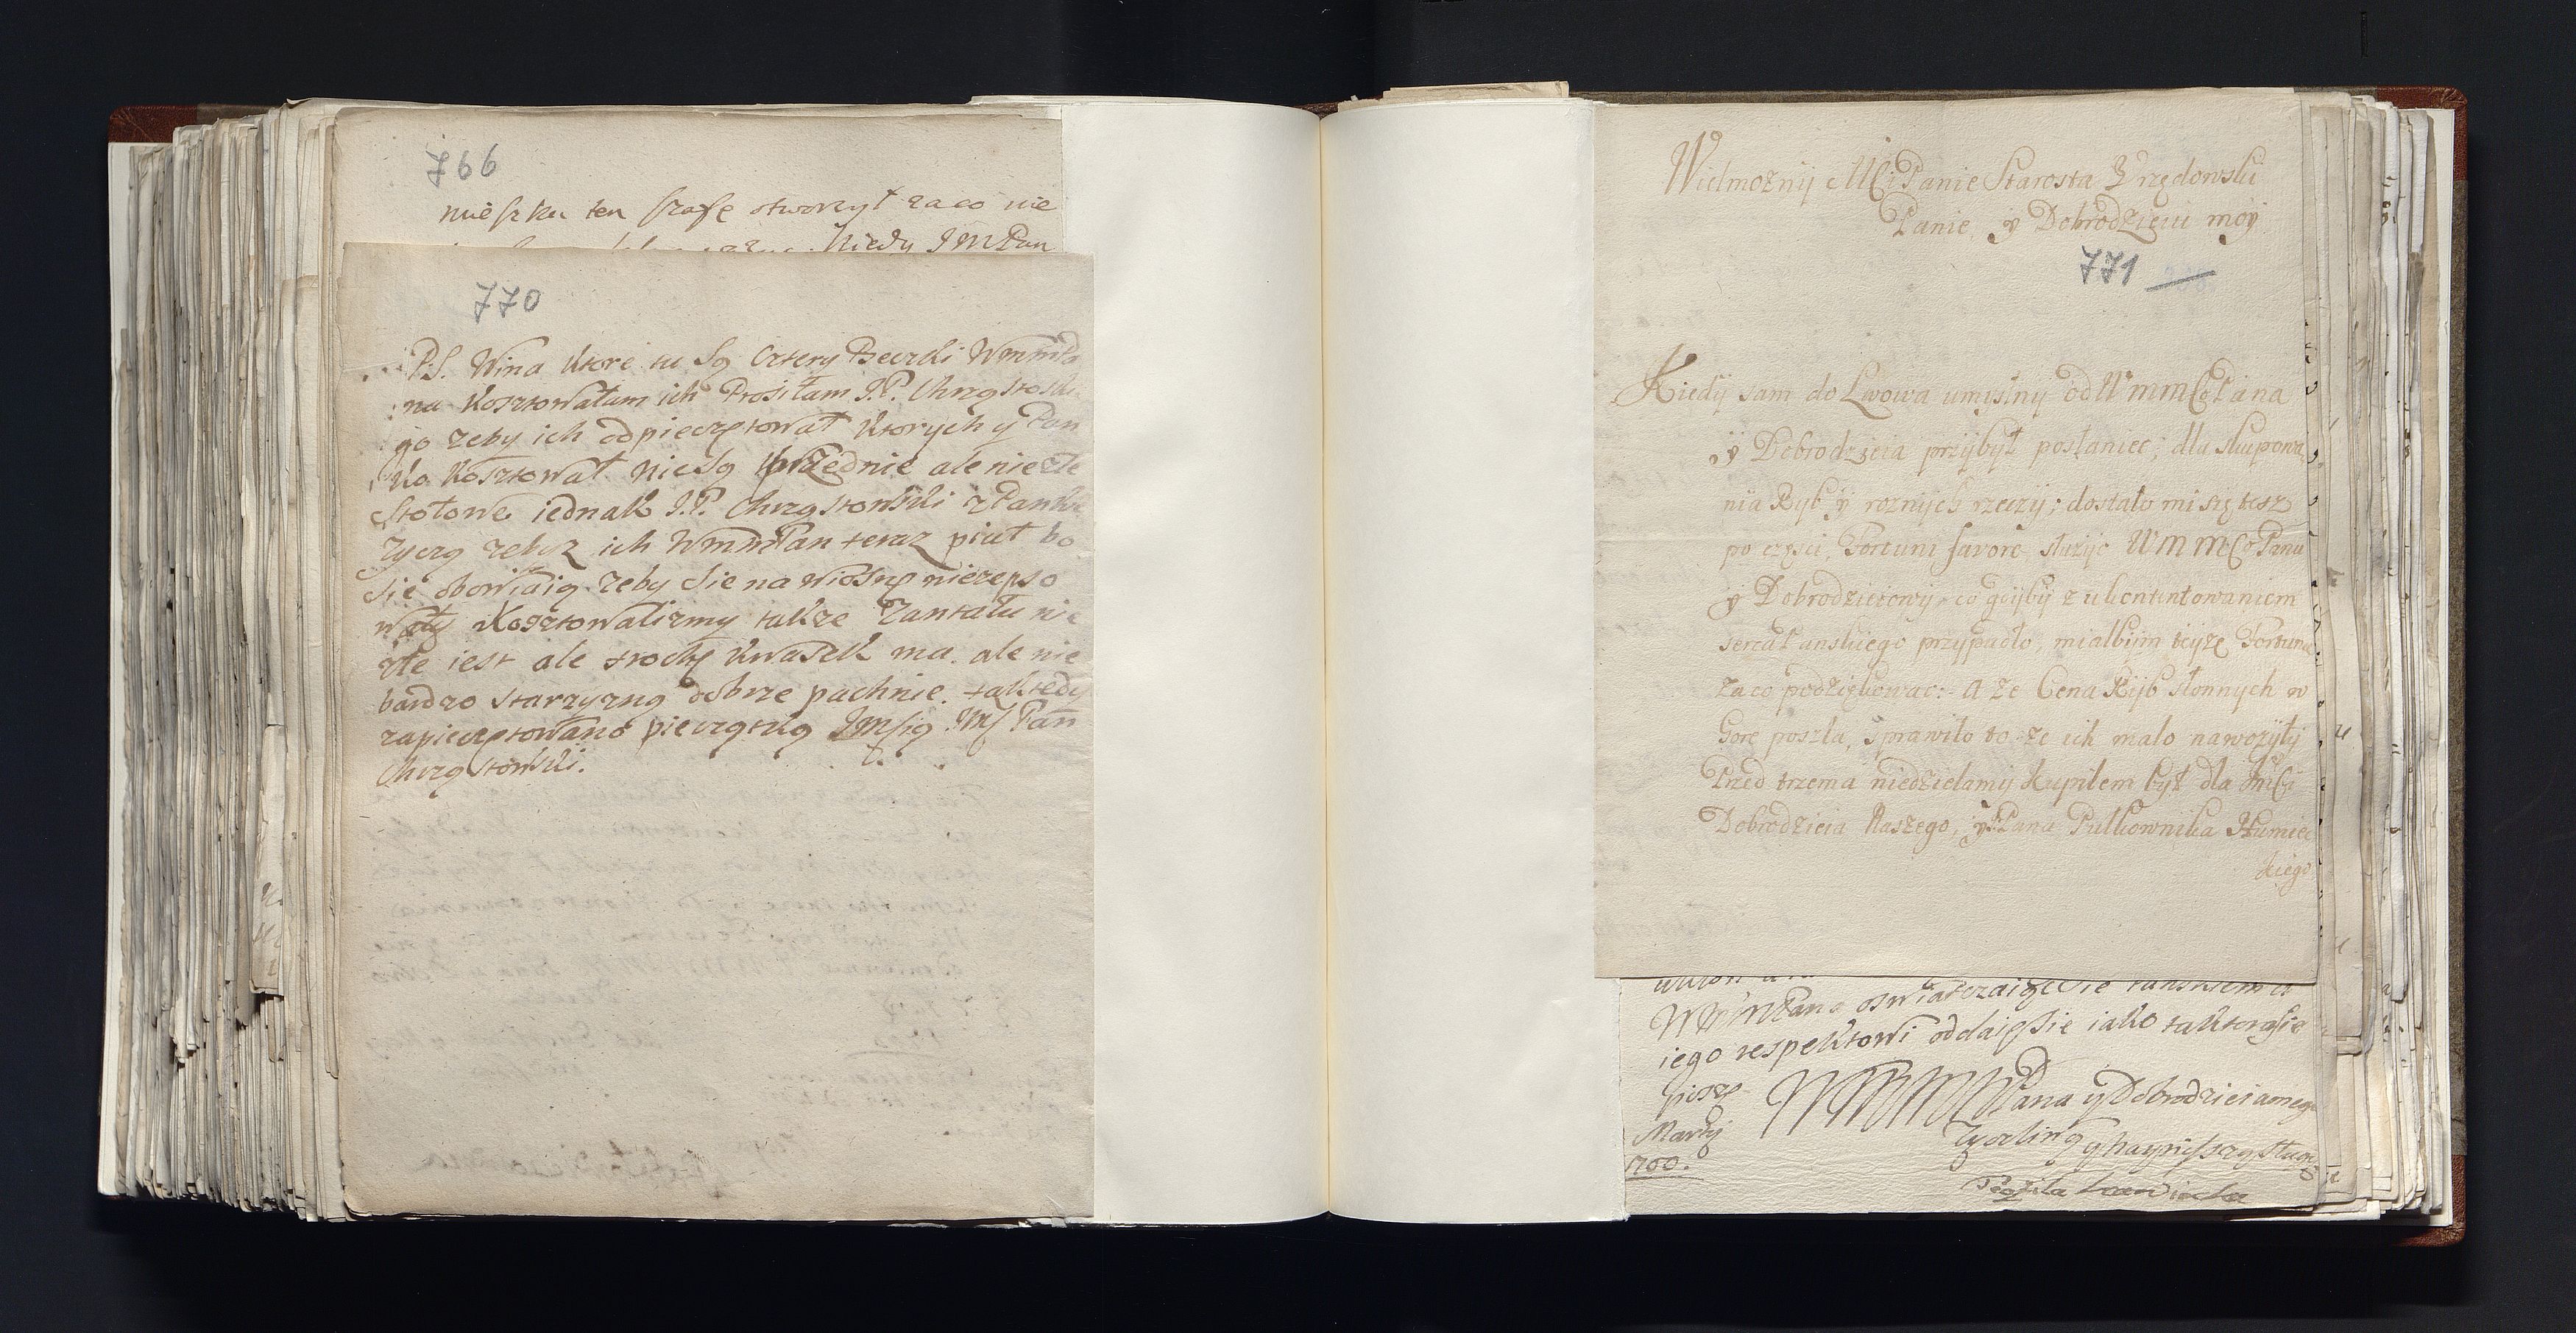 766
mieszku ten szafe otworzył zaco nie
Kiedy JMPan
770
P.S. Wina ktore tu Są Cztery Beczki
na kosztowałam ich Prosiłam J.P. Chrząstosk
go zeby ich odpieczętował ktorych y Pan
ko kosztował nie Są przednie ale niezłe
Stołowe iednak J.P. Chrząstowski z
zyczą zebysz ich WmmPan teraz piuł bo
Sie obowiaią zeby Sie na wiosnę niezepso
wały kosztowalizmy takze Zantału nie
złe iest ale trochę kwasek ma. ale nie
bardzo starzyzną dobrze pachnie. taktedy
zapieczętowano pieczątką Jmsią Jms Pan
Chrząstowski.
Wielmożnÿ MCi Panie Starosta Urzędowski
Panie ÿ Dobrodzieiu móÿ
771
Kiedÿ sam do Lwowa umÿslnÿ od WmmCo Pana
ÿ Dobrodzieia przÿbÿł posłaniec; dla skupowa
nia Rÿb ÿ roznÿch rzeczÿ; dostało mi się tesz
po części, Fortuni favore służÿc WM MCo Panu
ÿ Dobrodzieiowÿ, co gdÿbÿ z ukontentowaniem
serca Panskiego przÿpadło, miałbÿm teÿże Fortunie
zaco podziękowac: A że Cena Rÿb słonnych w
Gore poszła, Sprawiło to że ich mało nawozÿłÿ
Przed trzema niedzielamÿ kupiłem bÿł dla JmCi
Dobrodzieia Naszego, ÿ Pana Pułkownika Humiec
kiego
WmmPana oswiatczaiąc Sie Panskiemu
iego respektowi oddaięsie iako taktorasie
piszę
WMMWPana y Dobrodzieiamego
Martÿ
1700.
Zyczliwą y naynisszą Sługą
Teofila